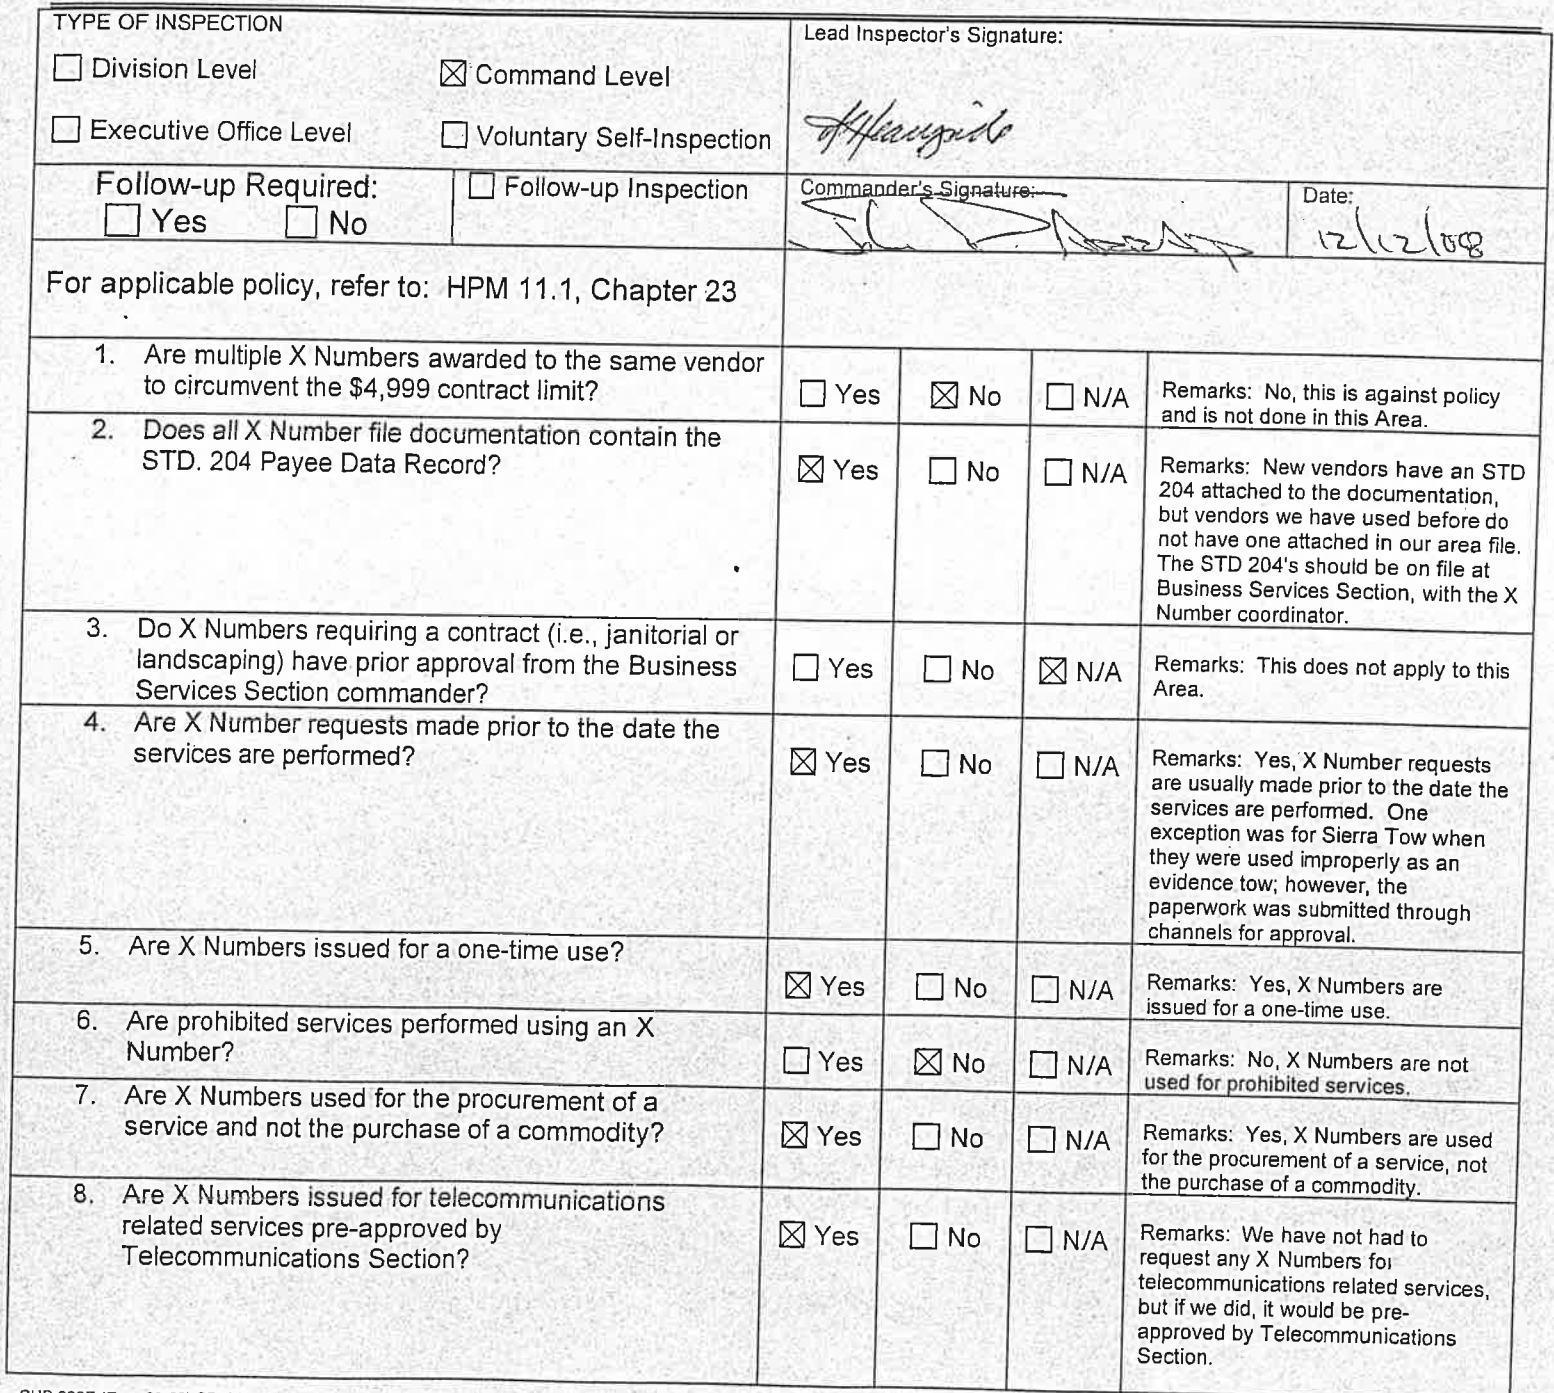 TYPE OF INSPECTION
☐ Division Level ☒ Command Level
☐ Executive Office Level ☐ Voluntary Self-Inspection
Lead Inspector's Signature:
Follow-up Required:
☐ Yes ☐ No
☐ Follow-up Inspection
Commander's Signature:
Date:
12/12/08
For applicable policy, refer to: HPM 11.1, Chapter 23
1. Are multiple X Numbers awarded to the same vendor
to circumvent the $4,999 contract limit?
☐ Yes ☒ No ☐ N/A
Remarks: No, this is against policy
and is not done in this Area.
2. Does all X Number file documentation contain the
STD. 204 Payee Data Record?
☒ Yes ☐ No ☐ N/A
Remarks: New vendors have an STD
204 attached to the documentation,
but vendors we have used before do
not have one attached in our area file.
The STD 204's should be on file at
Business Services Section, with the X
Number coordinator.
3. Do X Numbers requiring a contract (i.e., janitorial or
landscaping) have prior approval from the Business
Services Section commander?
☐ Yes ☐ No ☒ N/A
Remarks: This does not apply to this
Area.
4. Are X Number requests made prior to the date the
services are performed?
☒ Yes ☐ No ☐ N/A
Remarks: Yes, X Number requests
are usually made prior to the date the
services are performed. One
exception was for Sierra Tow when
they were used improperly as an
evidence tow; however, the
paperwork was submitted through
channels for approval.
5. Are X Numbers issued for a one-time use?
☒ Yes ☐ No ☐ N/A
Remarks: Yes, X Numbers are
issued for a one-time use.
6. Are prohibited services performed using an X
Number?
☐ Yes ☒ No ☐ N/A
Remarks: No, X Numbers are not
used for prohibited services.
7. Are X Numbers used for the procurement of a
service and not the purchase of a commodity?
☒ Yes ☐ No ☐ N/A
Remarks: Yes, X Numbers are used
for the procurement of a service, not
the purchase of a commodity.
8. Are X Numbers issued for telecommunications
related services pre-approved by
Telecommunications Section?
☒ Yes ☐ No ☐ N/A
Remarks: We have not had to
request any X Numbers for
telecommunications related services,
but if we did, it would be pre-
approved by Telecommunications
Section.